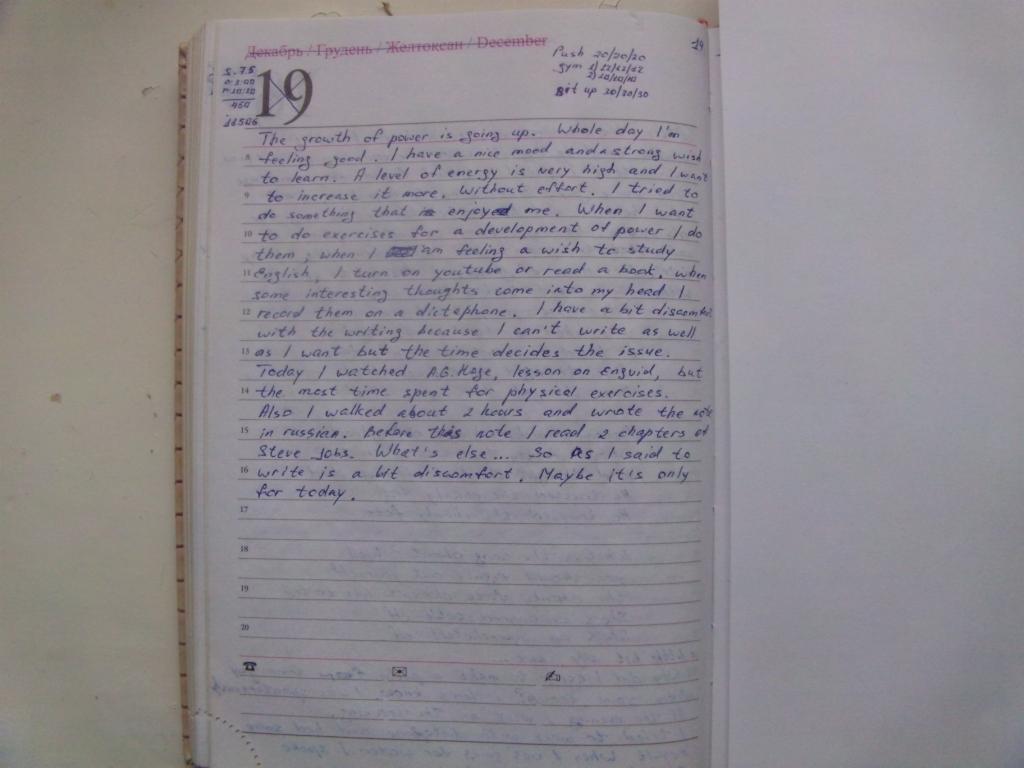 Декабрь / Грудень / Желтоксан / December
19
Push 20/20/20
gym 1) 12/12/12
2) 10/10/10
Sit up 30/30/30
19
The growth of power is going up. Whole day I'm
8 feeling good. I have a nice mood and a strong wish
to learn. A level of energy is very high and I want
9 to increase it more. Without effort. I tried to
do something that enjoyed me. When I want
10 to do exercises for a development of power I do
them, when I am feeling a wish to study
11 English, I turn on youtube or read a book, when
some interesting thoughts come into my head I
12 record them on a dictaphone. I have a bit discomfort
with the writing because I can't write as well
13 as I want but the time decides the issue.
Today I watched A.G. Hoge, lesson on Engvid, but
14 the most time spent for physical exercises.
Also I walked about 2 hours and wrote the note
15 in russian. Before this note I read 2 chapters of
Steve Jobs. What's else... So As I said to
16 write is a bit discomfort. Maybe it's only
for today.
17
18
19
20